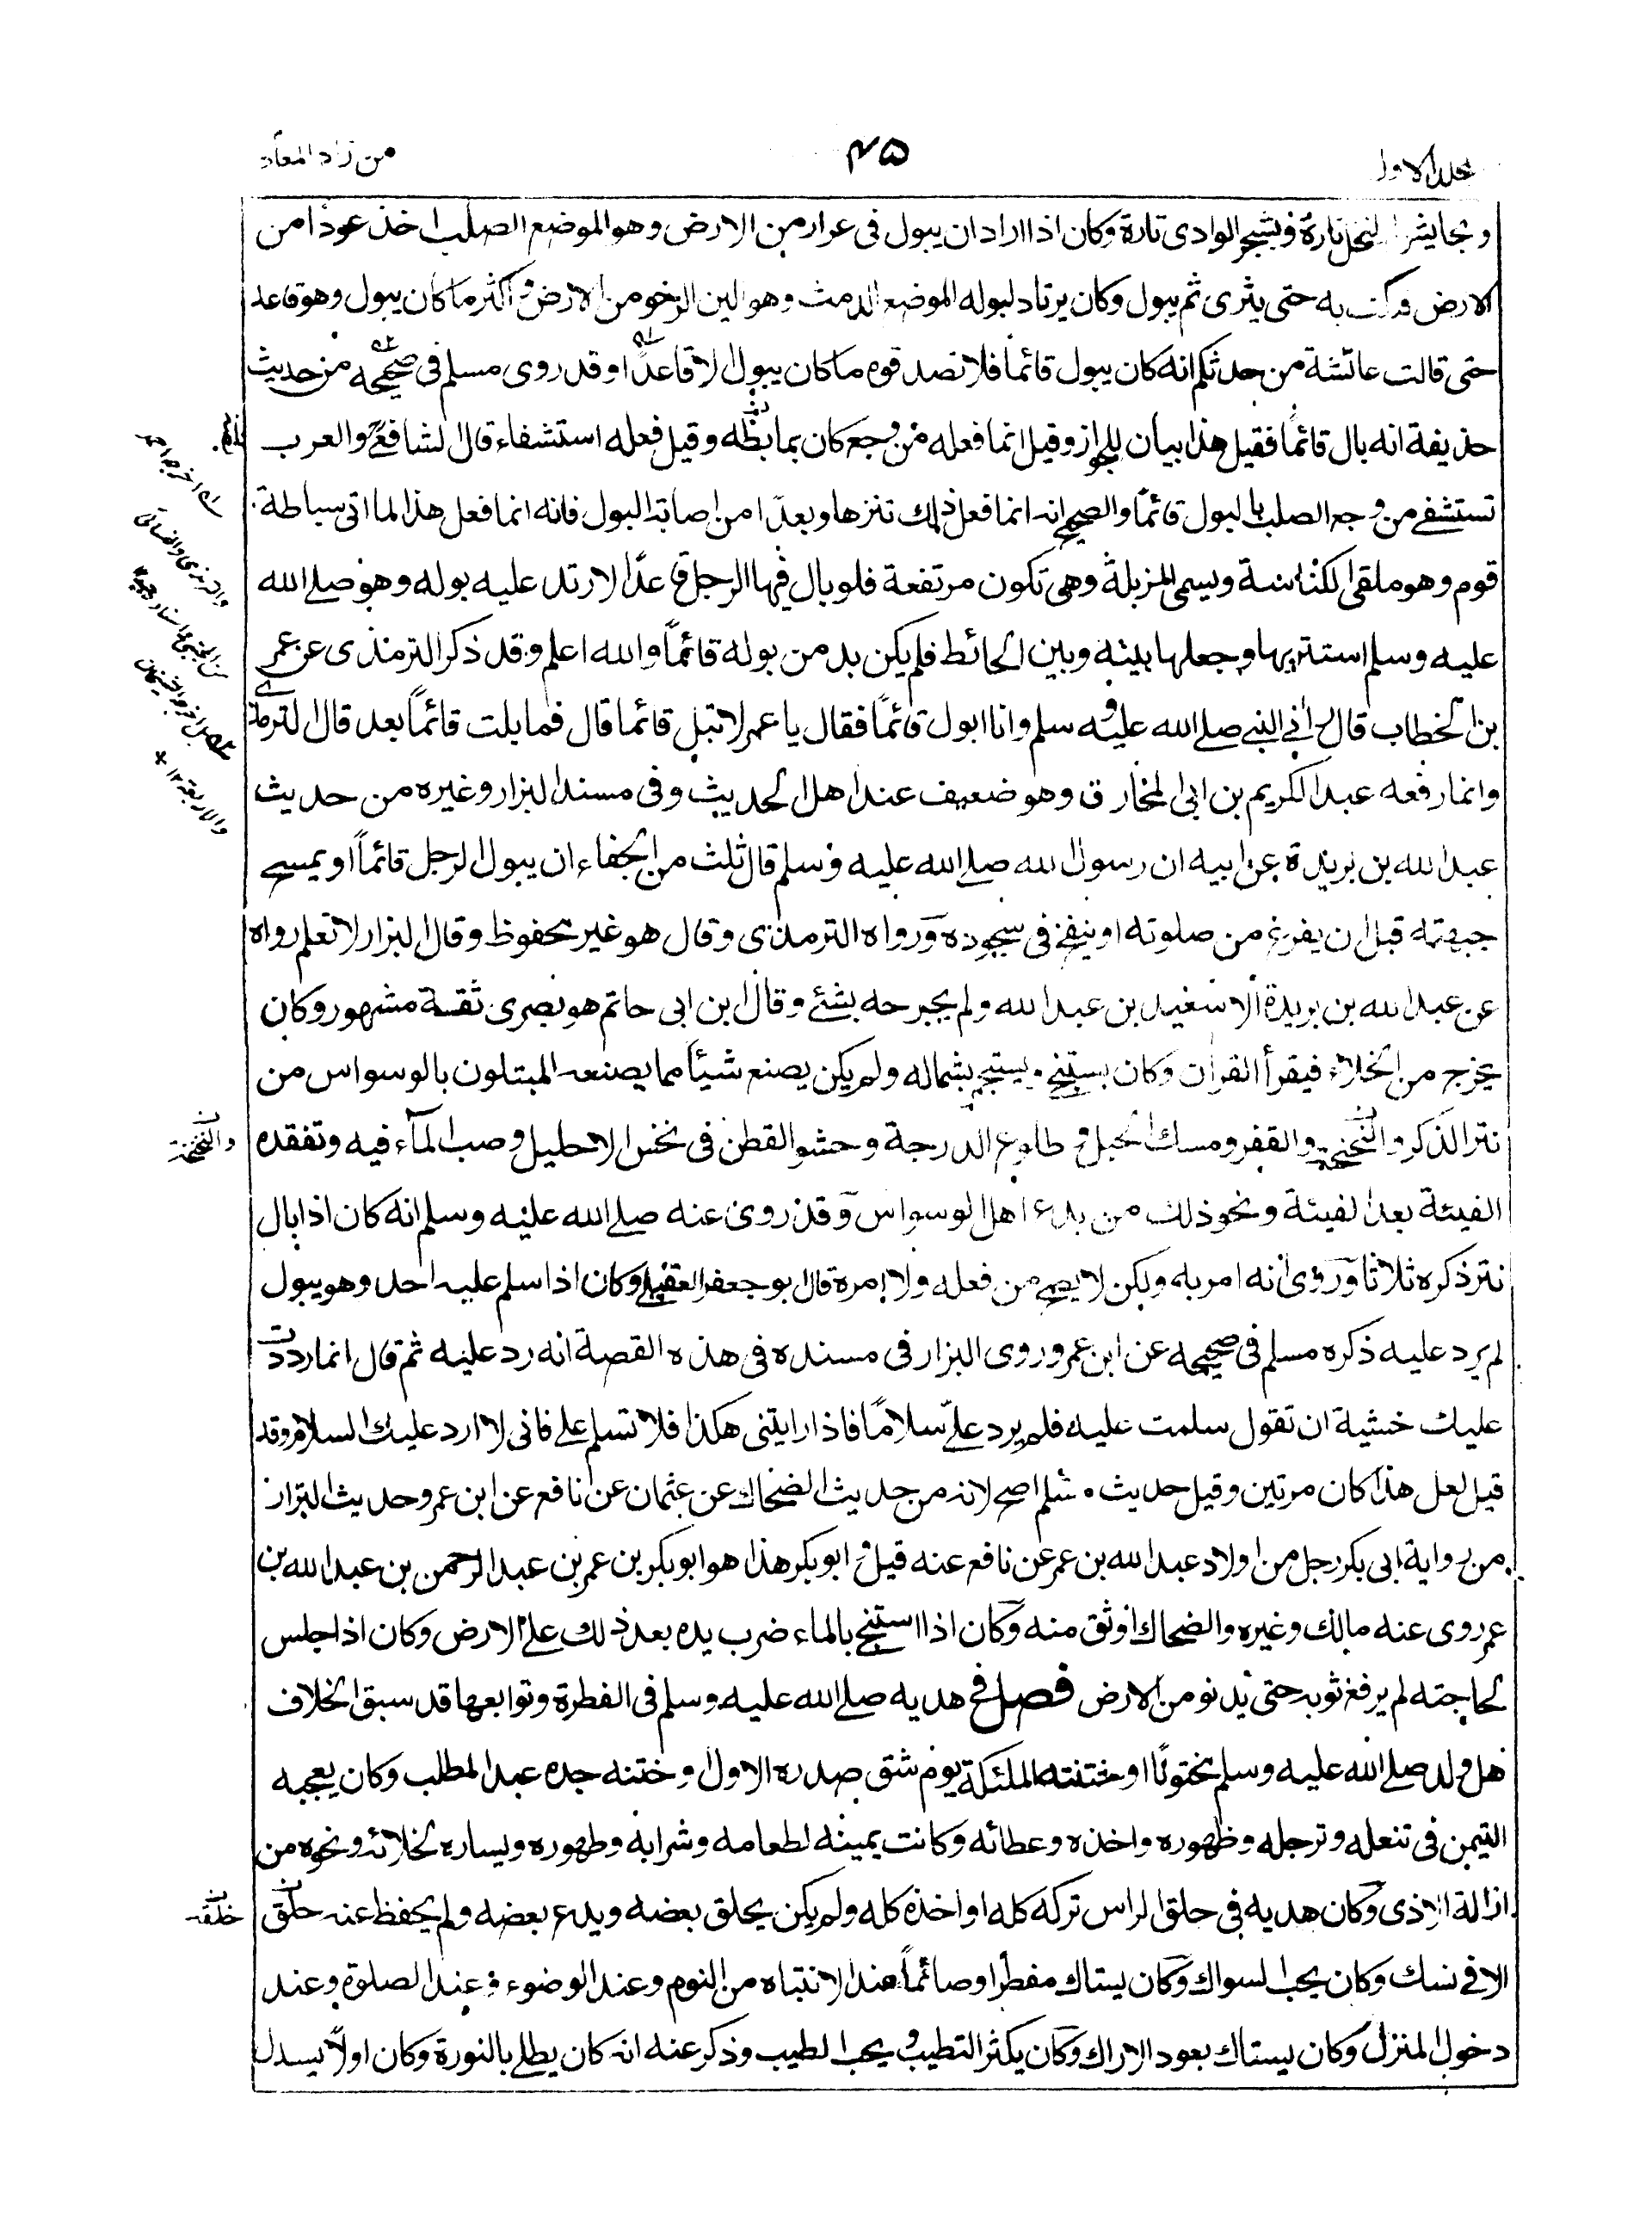 من زاد المعاد
٤٥
المجلد الاول
وبحايش النخل تارة وبشجر الوادى تارة وكان اذا اراد ان يبول فى عزاز من الارض وهو الموضع الصلب اخذ عودا من
الارض فنكت به حتى يثرى ثم يبول وكان يرتاد لبوله الموضع الدمث وهو اللين الرخو من الارض واكثر ما كان يبول وهو قاعد
حتى قالت عائشة من حدثكم انه كان يبول قائما فلا تصدقوه ما كان يبول الا قاعدا وقد روى مسلم فى صحيحه من حديث
حذيفة انه بال قائما فقيل هذا بيان للجواز وقيل انما فعله من وجع كان بمابظه وقيل فعله استشفاء قال الشافعى والعرب
تستشفے من وجع الصلب بالبول قائما والصحيح انه انما فعل ذلك تنزها وبعدا من اصابة البول فانه انما فعل هذا لما اتى سباطة
قوم وهو ملقى الكناسة ويسمى المزبلة وهى تكون مرتفعة فلو بال فيها الرجل قاعدا لارتد عليه بوله وهو صلے الله
عليه وسلم استتر بها وجعلها بينه وبين الحائط فلم يكن بد من بوله قائما والله اعلم وقد ذكر الترمذى عن عمر
بن الخطاب قال رانى النبے صلے الله عليه وسلم وانا ابول قائما فقال يا عمر لا تبل قائما قال فما بلت قائما بعد قال الترمذى
وانما رفعه عبد الكريم بن ابى المخارق وهو ضعيف عند اهل الحديث وفى مسند البزار وغيره من حديث
عبد الله بن بريدة عن ابيه ان رسول الله صلے الله عليه وسلم قال ثلث من الجفاء ان يبول الرجل قائما او يمسح
جبهته قبل ان يفرغ من صلوته او ينفخ فى سجوده ورواه الترمذى وقال هو غير محفوظ وقال البزار لا نعلم رواه
عن عبد الله بن بريدة الا سعيد بن عبد الله ولم يجرحه بشئے وقال ابن ابى حاتم هو بصرى ثقة مشهور وكان
يخرج من الخلاء فيقرأ القران وكان يستنجے ويستجمر بشماله ولم يكن يصنع شيئا مما يصنعه المبتلون بالوسواس من
نتر الذكر والنحنحة والقفز ومسك الحبل و طلوع الدرجة وحشو القطن فى نخس الاحليل وصب الماء فيه وتفقده
الفيئة بعد الفيئة ونحو ذلك من بدع اهل الوسواس وقد روى عنه صلے الله عليه وسلم انه كان اذا بال
نتر ذكره ثلاثا وروى انه امر به ولكن لا يصح من فعله ولا امره قال ابو جعفر العقيلے وكان اذا سلم عليه احد وهو يبول
لم يرد عليه ذكره مسلم فى صحيحه عن ابن عمر وروى البزار فى مسنده فى هذه القصة انه رد عليه ثم قال انما رددت
عليك خشية ان تقول سلمت عليه فلم يرد علىّ سلاما فاذا رايتنى هكذا فلا تسلم علے فانى لا ارد عليك السلام وقد
قيل لعل هذا كان مرتين وقيل حديث مسلم اصح لانه من حديث الضحاك عن عثمان عن نافع عن ابن عمر وحديث البزار
من رواية ابى بكر رجل من اولاد عبد الله بن عمر عن نافع عنه قيل و ابو بكر هذا هو ابو بكر بن عمر بن عبد الرحمن بن عبد الله بن
عمر روى عنه مالك وغيره والضحاك اوثق منه وكان اذا استنجے بالماء ضرب يده بعد ذلك علے الارض وكان اذا جلس
لحاجته لم يرفع ثوبه حتى يدنو من الارض فصل فى هديه صلے الله عليه وسلم فى الفطرة وتوابعها قد سبق الخلاف
هل ولد صلے الله عليه وسلم مختونا او ختنته الملئكة يوم شق صدره الاول او ختنه جده عبد المطلب وكان يعجبه
التيمن فى تنعله وترجله وطهوره واخذه وعطائه وكانت يمينه لطعامه وشرابه وطهوره ويساره لخلائه ونحوه من
ازالة الاذى وكان هديه فى حلق الراس تركه كله او اخذه كله ولم يكن يحلق بعضه ويدع بعضه ولم يحفظ عنه حلق
الا فى نسك وكان يحب السواك وكان يستاك مفطرا وصائما عند الانتباه من النوم وعند الوضوء وعند الصلوة وعند
دخول المنزل وكان يستاك بعود الاراك وكان يكثر التطيب و يحب الطيب وذكر عنه انه كان يطلے بالنورة وكان اولا يسدل
اخرجه احمد
والترمذى والنسائى
والاربعة ١٢
والنحنحة
حلقه